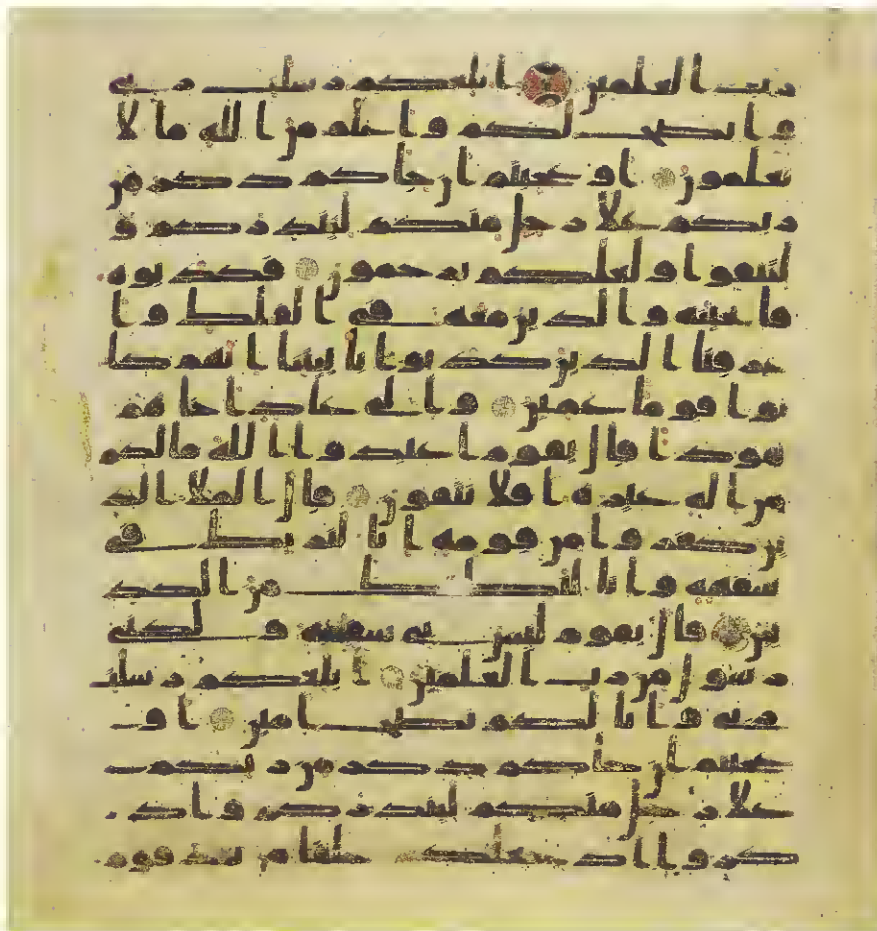 رب العلمين ابلغكم رسلت ربي
وانصح لكم واعلم من الله ما لا
تعلمون او عجبتم ان جاكم ذكر من
ربكم علا رجل منكم لينذركم و
لتتقوا ولعلكم ترحمون فكذبوه
فانجينه والذين معه في الفلك وا
غرقنا الذين كذبوا باييتنا انهم كا
نوا قوما عمين والى عاد اخاهم
هودا قال يقوم اعبدوا الله مالكم
من اله غيره افلا تتقون قال الملا الذ
ين كفروا من قومه انا لنريك في
سفهه وانا لنظنك من الكذ
بين قال يقوم ليس بي سفهه ولكني
رسول من رب العلمين ابلغكم رسلت
ربي وانا لكم ناصح امين او
عجبتم ان جاكم ذكر من ربكم
علا رجل منكم لينذركم واذ
كروا اذ جعلكم خلفا من بعد قوم